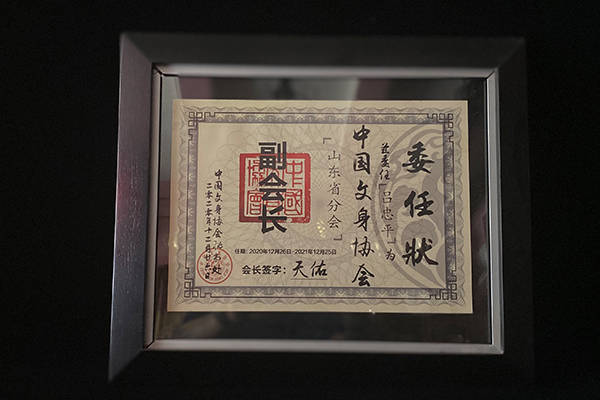 委任狀
兹委任「吕忠平」为
中国文身协会
「山东省分会」
副会长
任期:2020年12月26日--2021年12月25日
会长签字:天佑
中国文身协会秘书处
二零二零年十二月廿六日